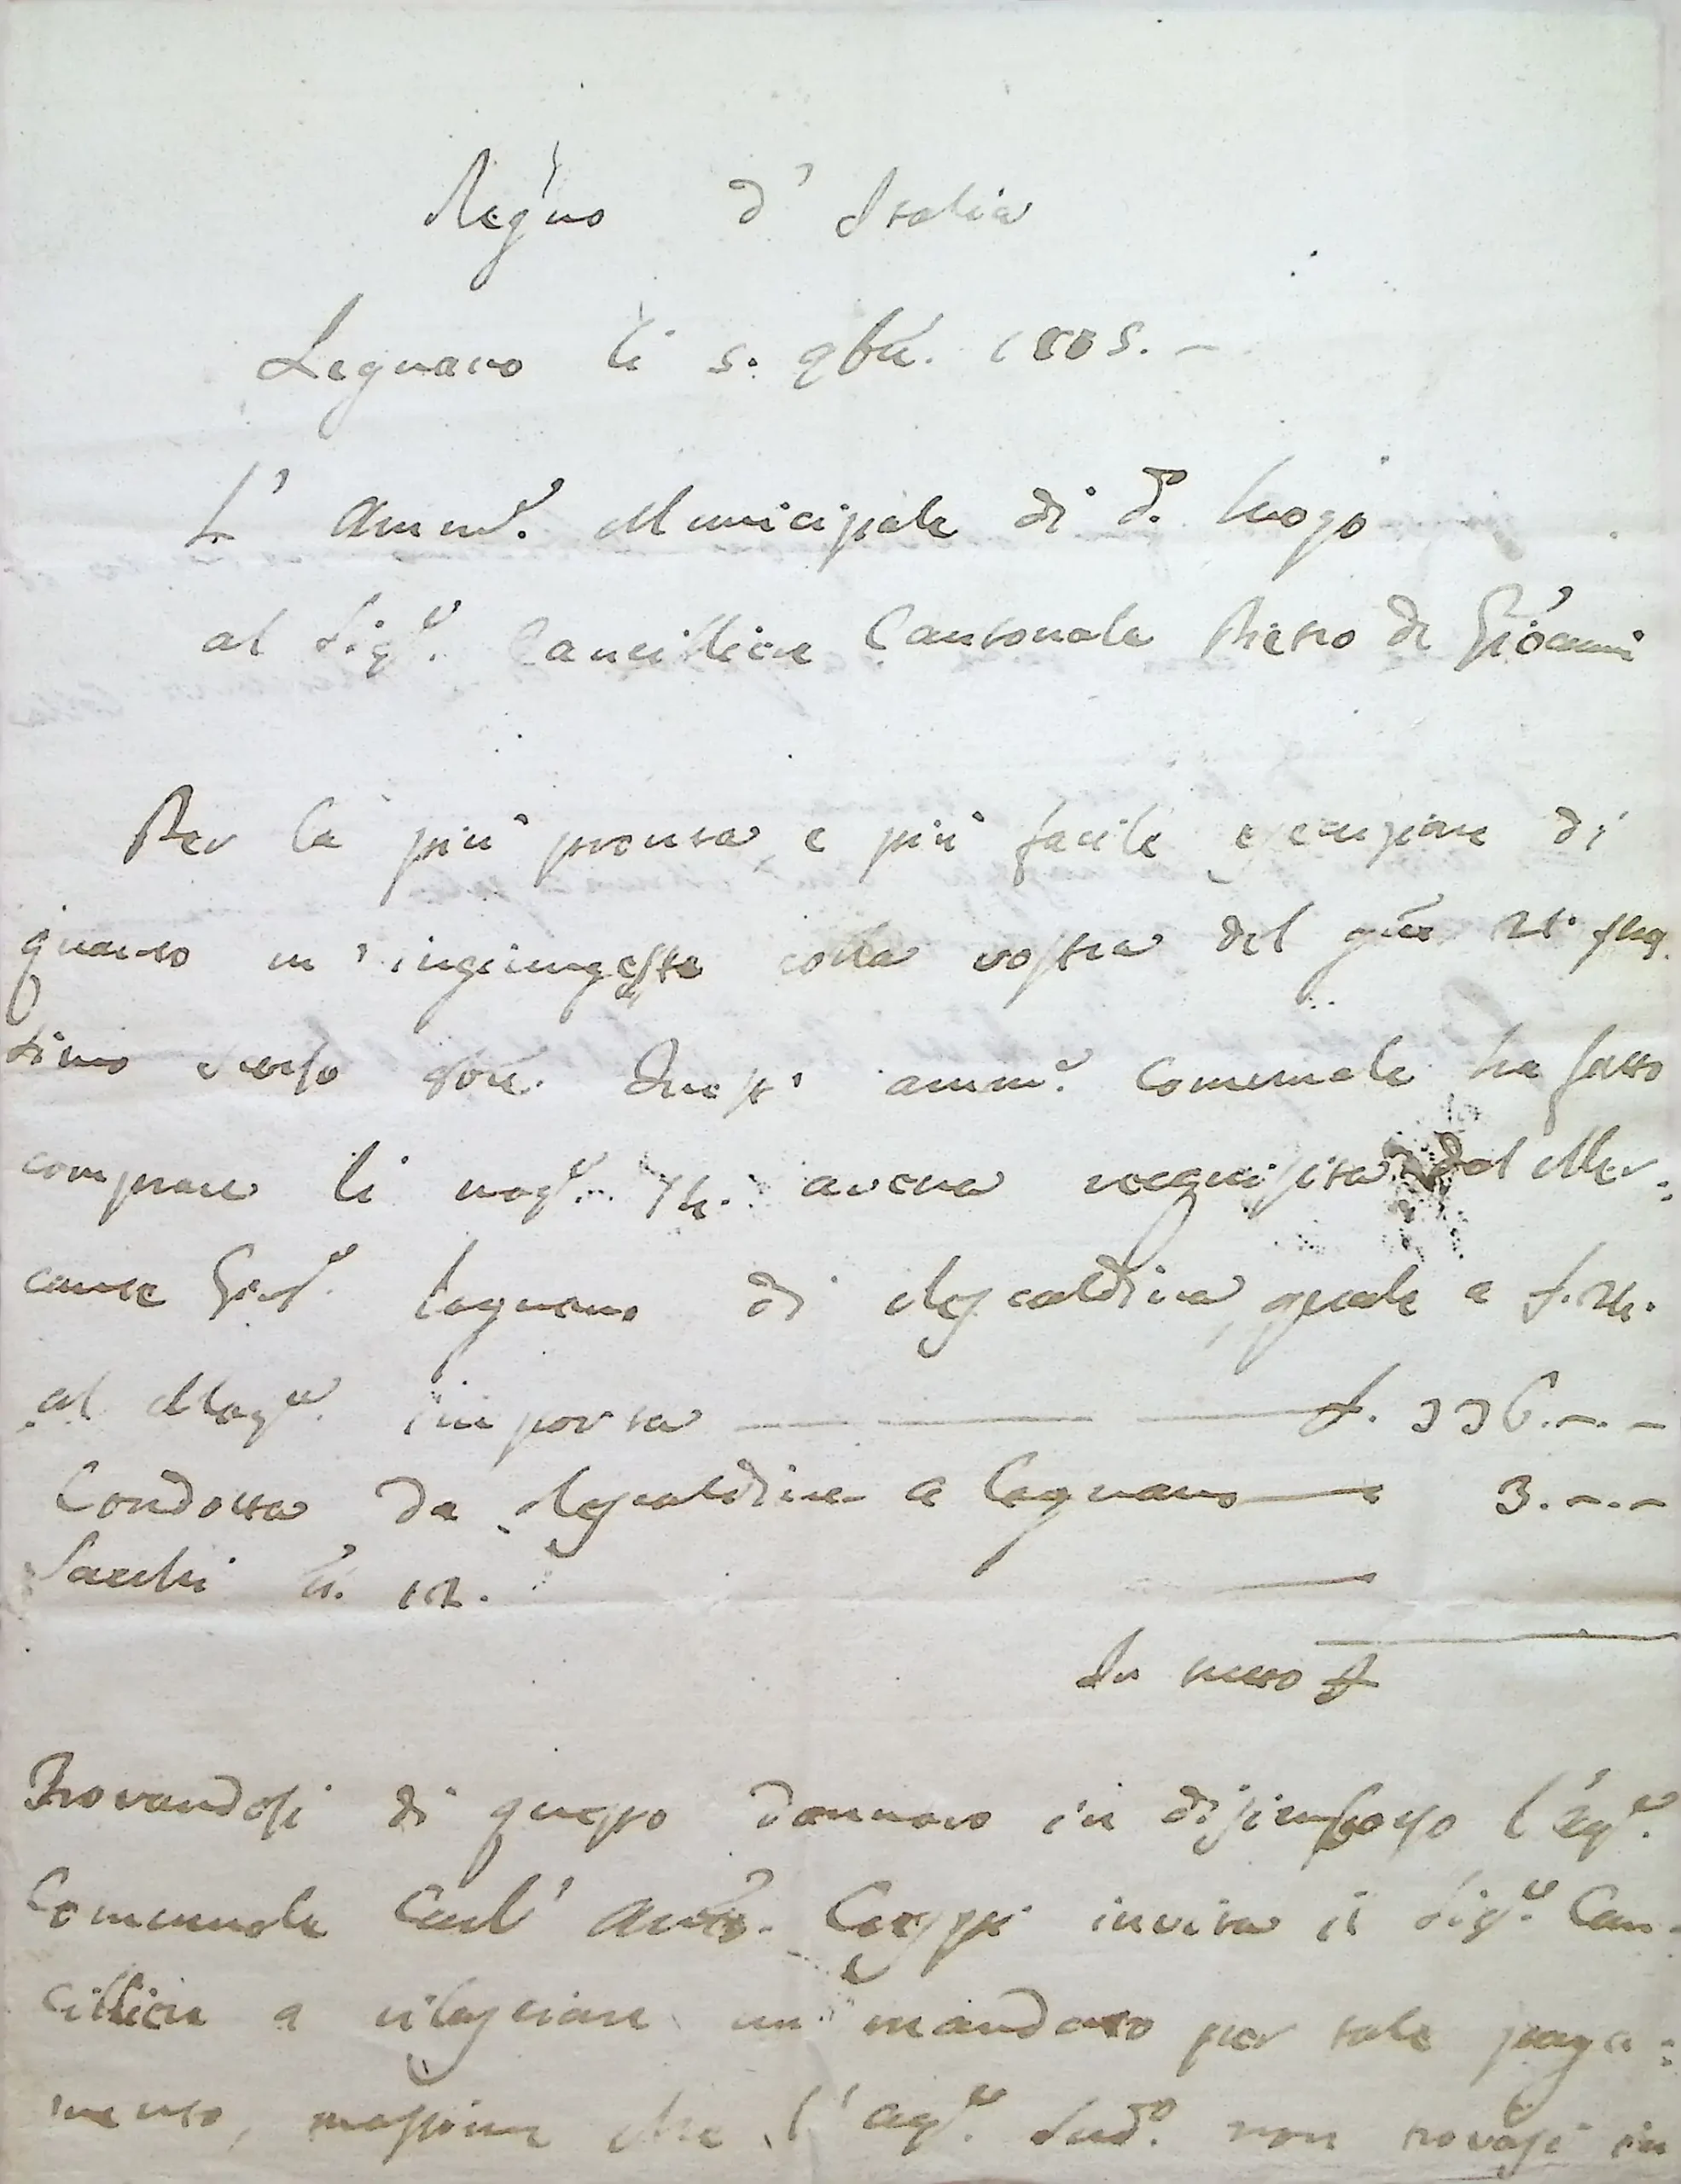 Regno d'Italia
Legnano li 5. 9bre. 1805. -
L' Amm.e Municipale di d.o luogo
al Sig.e Cancilliere Cantonale Pietro de Giovanni
Per la più pronta, e più facile esecuzione di
quanto m'ingiungeste colla vostra del gno 21. sett.
timo verso sore. Quest' amm.e Comunale ha fatto
comprare li mog.a 14. avena requisita dal Mer-
cante Gius.e Legnano di Rescaldina, quale a £. 24.
al Mog.o importa — — — £. 336.-.-
Condotta da Rescaldina a Legnano — 3.-.-
Sacchi n. 12. —
In tutto £
Trovandosi di questo dannaro in disimborso l'ag.e
Comunale Carl' Anto. Crespi invita il Sig.e Can-
cilliere a rilasciare un mandato per tale paga-
mento, massime che l'ag.e sud.o non trovasi in